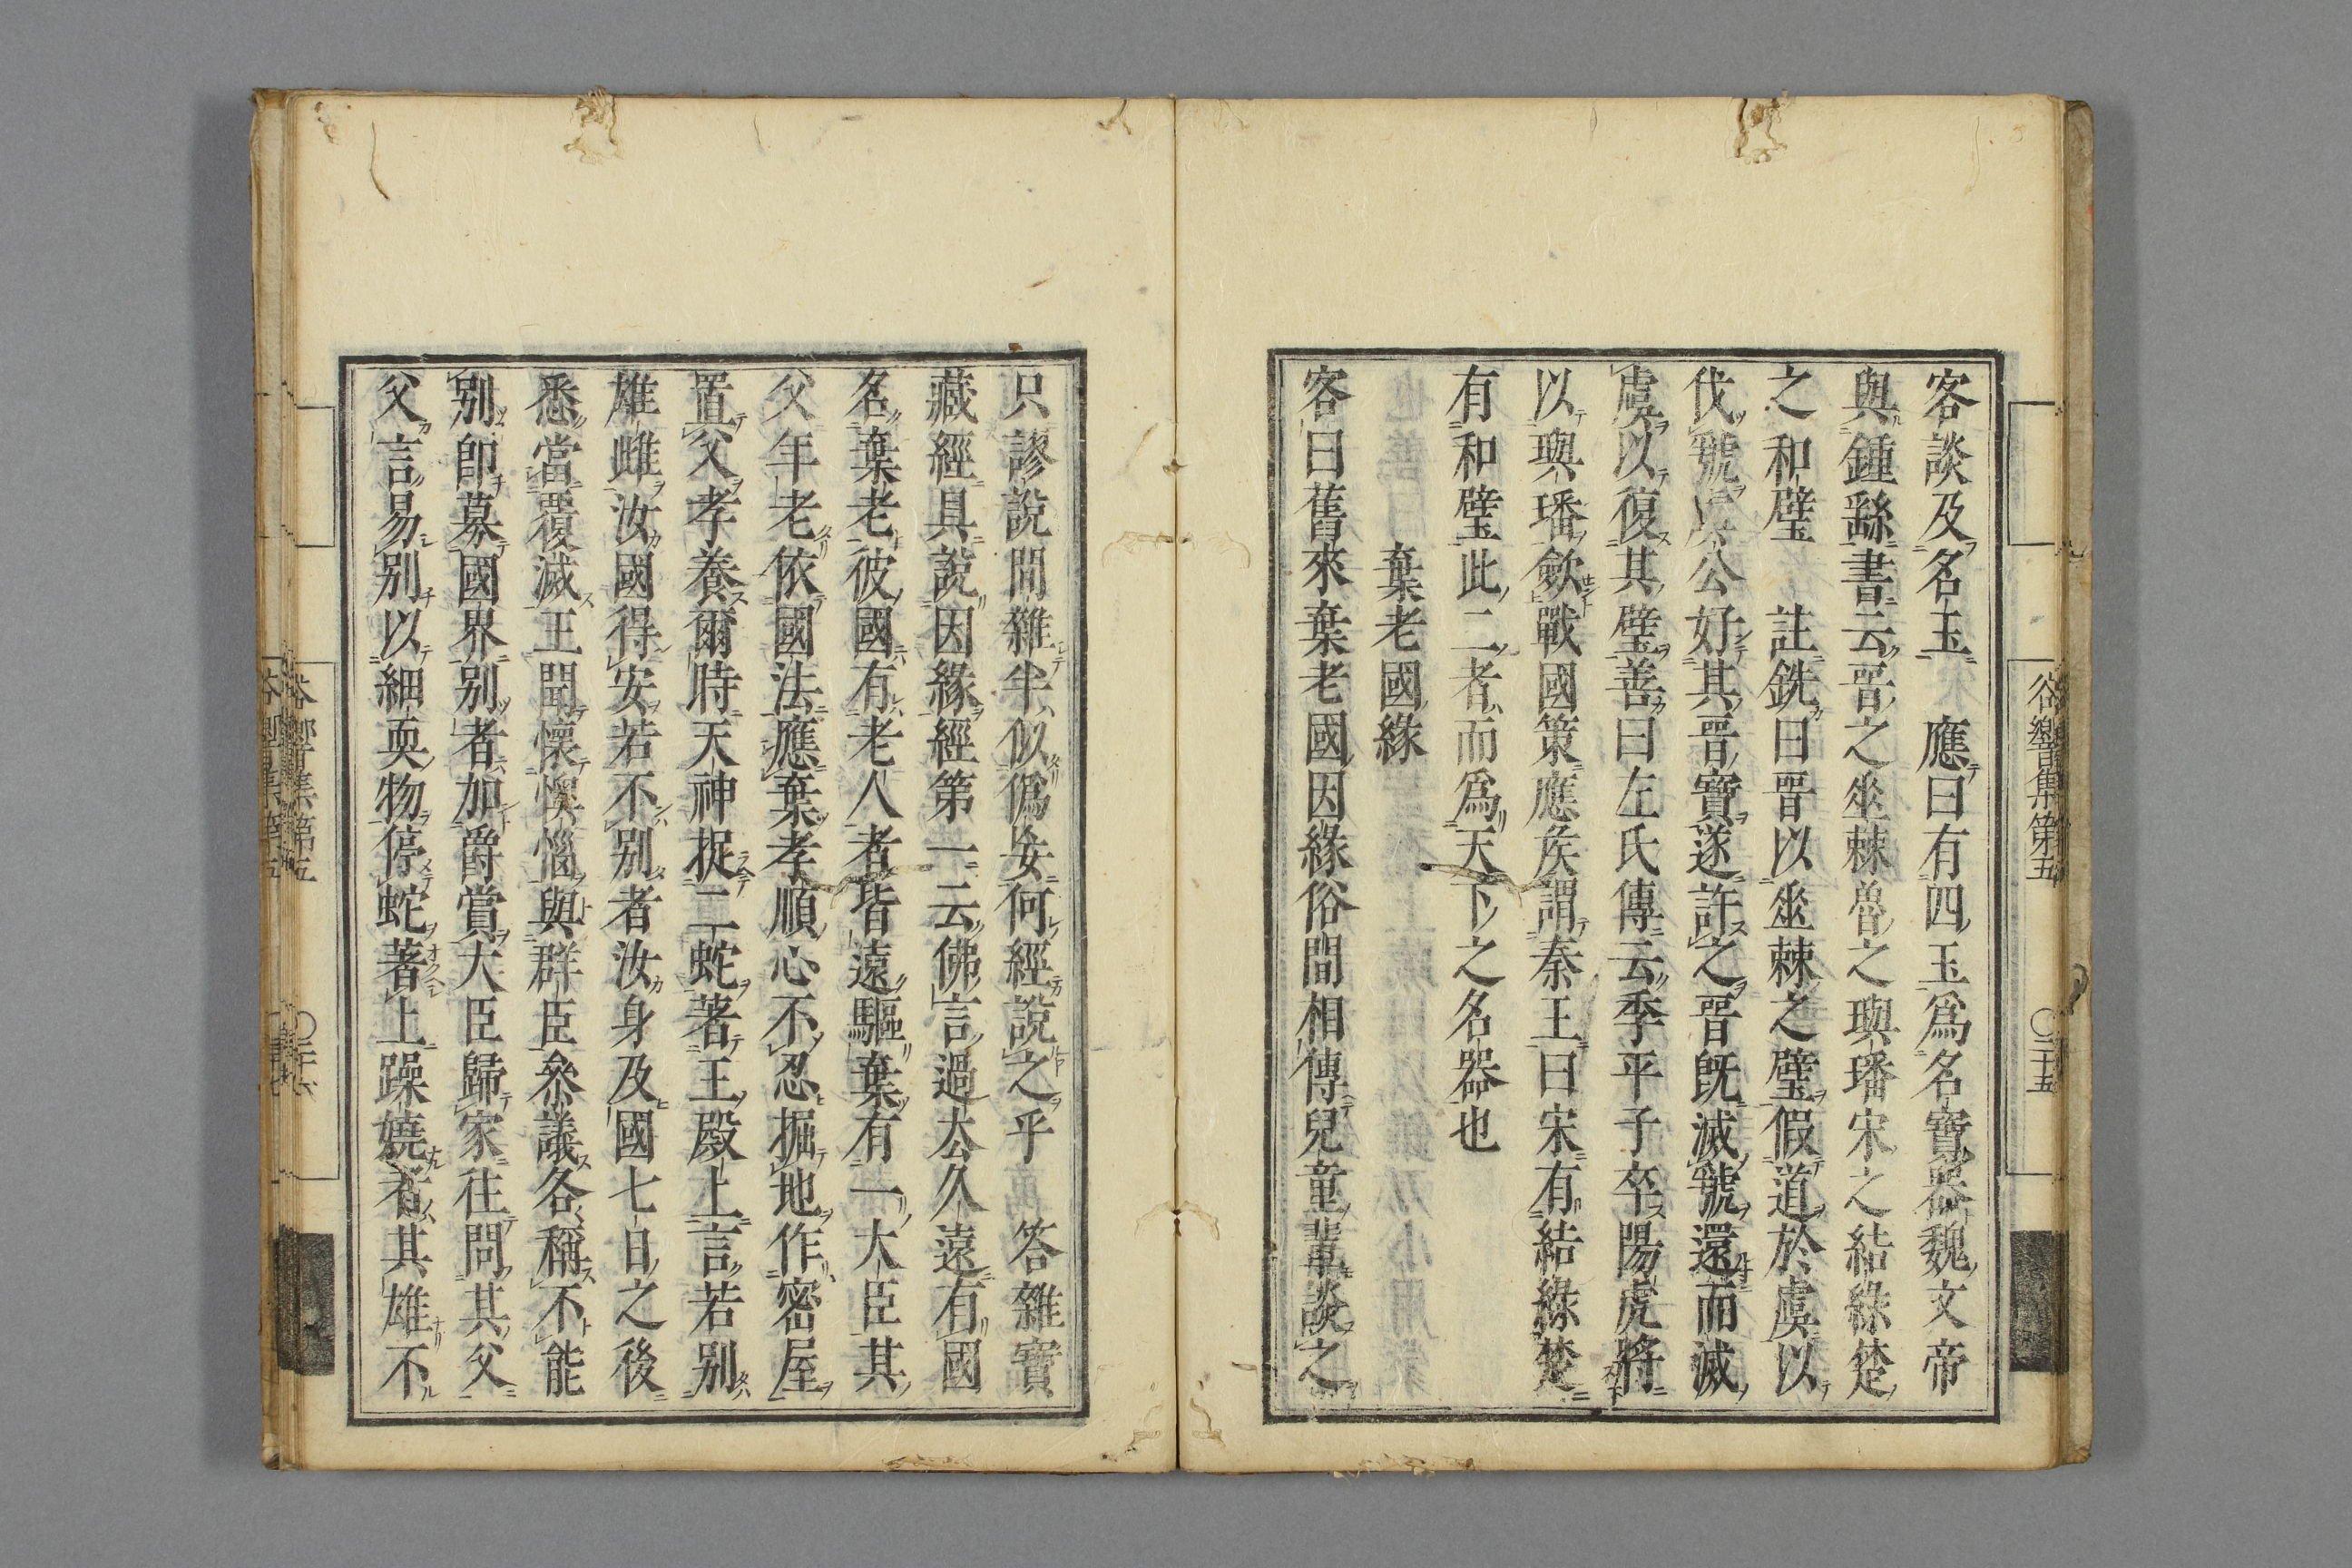 客談及名玉 應曰有四玉爲名寶器魏文帝
與鍾繇書云晉之垂棘魯之璵璠宋之結綠楚
之和璧 註銑曰晉以垂棘之璧假道於虞以
伐虢虞公好其晉寶遂許之晉既滅虢還而滅
虞以復其璧善曰左氏傳云季平子卒陽虎將
以璵璠斂戰國策應矦謂秦王曰宋有結綠楚
有和璧此二者而爲天下之名器也
棄老國緣
客曰舊來棄老國因緣俗間相傳兒童輩談之
谷響集第五 〇二十五
只謬說間雜半似僞妄何經說之乎 答雜寶
藏經具說因緣經第一云佛言過去久遠有國
名棄老彼國有老人者皆遠驅棄有一大臣其
父年老依國法應棄孝順心不忍掘地作密屋
置父孝養爾時天神捉二蛇著王殿上言若別
雄雌汝國得安若不別者汝身及國七日之後
悉當覆滅王聞懷懊惱與群臣參議各稱不能
別卽募國界別者加爵賞大臣歸家往問其父
父言易別以細耎物停蛇著上躁嬈者其雄不
谷響集第五 〇二十六